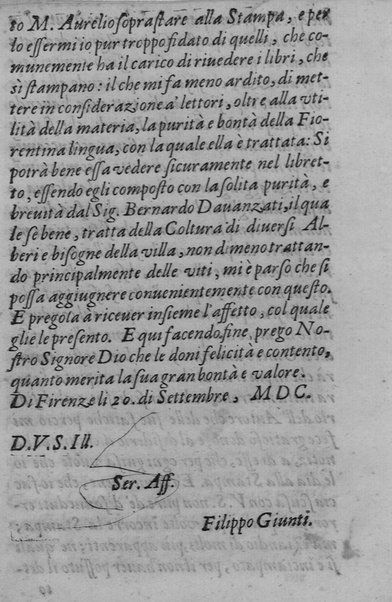 to M. Aurelio soprastare alla Stampa, e per
lo essermi io pur troppo fidato di quelli, che co-
munemente ha il carico di riuedere i libri, che
si stampano: il che mi fa meno ardito, di met-
tere in considerazione a' lettori, oltre alla vti-
lità della materia, la purità e bontà della Fio-
rentina lingua, con la quale ella è trattata: Si
potrà bene essa vedere sicuramente nel libret-
to, essendo egli composto con la solita purità, e
breuità dal Sig. Bernardo Dauanzati, il qua
le se bene, tratta della Coltura di diuersi Al-
beri e bisogne della villa, non di meno trattan-
do principalmente delle viti, mi è parso che si
possa aggiugnere conuenientemente con questo.
E pregola à riceuer insieme l'affetto, col quale
glie le presento. E qui facendo fine, prego No-
stro Signore Dio che le doni felicità e contento,
quanto merita la sua gran bontà e valore.
Di Firenze li 20. di Settembre, MDC.
D.V.S.Ill.
Ser. Aff.
Filippo Giunti.